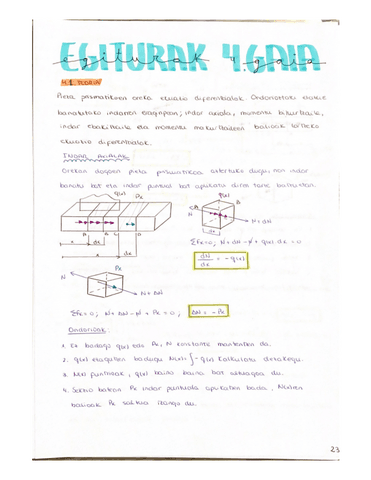 EGITURAK 4.GAIA
egiturak 4. gaia
4.1. TEORIA
Pieza prismatikoen oreka ekuazio diferentzialak. Ondorioztatu
banatutako indarren eraginpean; indar axiala, momentu bihurtzaile,
indar ebakitzaile eta momentu makurtzaileen balioak lotzeko
ekuazio diferentzialak.
INDAR AXIALAK
Orekan dagoen pieza prismatikoa aztertuko dugu, non indar
banatu bat eta indar puntual bat aplikatu diren
q(x) Px
A B C D
x dx
x dx
N N+dN
dx
ΣFx=0; N+dN-N+q(x).dx=0
dN/dx = -q(x)
N Px N+ΔN
ΣFx=0; N+ΔN-N+Px=0; ΔN=-Px
Ondorioak:
1. Ez badago q(x) eta Px, N konstante mantentzen da.
2. q(x) ezagutzen badugu N(x)=∫-q(x) kalkulatu dezakegu.
3. N(x) funtzioak, q(x) baino maila bat altuagoa du.
4. Sekzio batean Px indar puntuala aplikatzen bada, N(x)ren
balioak Px saltoa izango du.
23